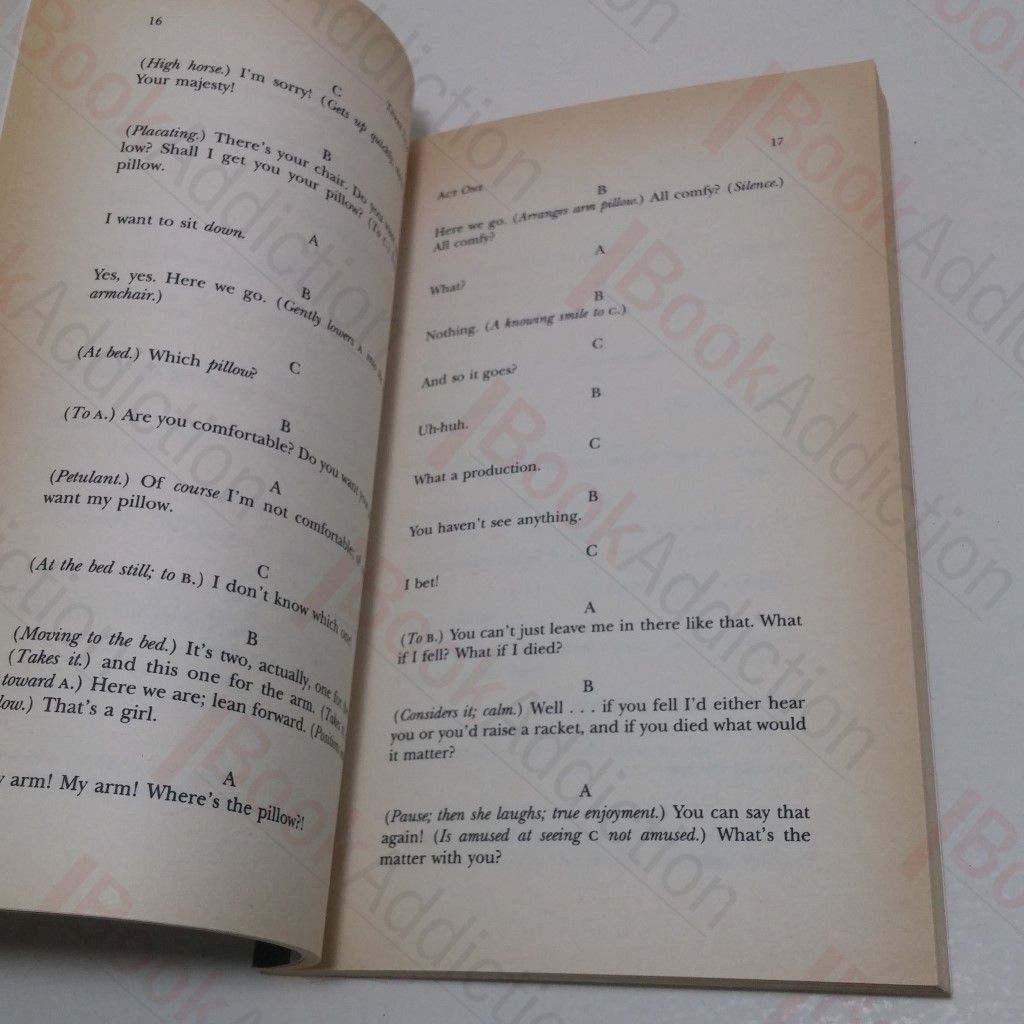 16
C
(High horse.) I'm sorry! (Gets up quickly,
Your majesty!
B
(Placating.) There's your chair. Do you want
low? Shall I get you your pillow? (To C.)
pillow.
A
I want to sit down.
B
Yes, yes. Here we go. (Gently lowers A into the
armchair.)
C
(At bed.) Which pillow?
B
(To A.) Are you comfortable? Do you want your
A
(Petulant.) Of course I'm not comfortable;
want my pillow.
C
(At the bed still; to B.) I don't know which one
B
(Moving to the bed.) It's two, actually, one for
(Takes it.) and this one for the arm.
toward A.) Here we are; lean forward.
low.) That's a girl.
A
arm! My arm! Where's the pillow?!
17
ACT ONE
B
Here we go. (Arranges arm pillow.) All comfy? (Silence.)
All comfy?
A
What?
B
Nothing. (A knowing smile to C.)
C
And so it goes?
B
Uh-huh.
C
What a production.
B
You haven't see anything.
C
I bet!
A
(To B.) You can't just leave me in there like that. What
if I fell? What if I died?
B
(Considers it; calm.) Well . . . if you fell I'd either hear
you or you'd raise a racket, and if you died what would
it matter?
A
(Pause; then she laughs; true enjoyment.) You can say that
again! (Is amused at seeing C not amused.) What's the
matter with you?